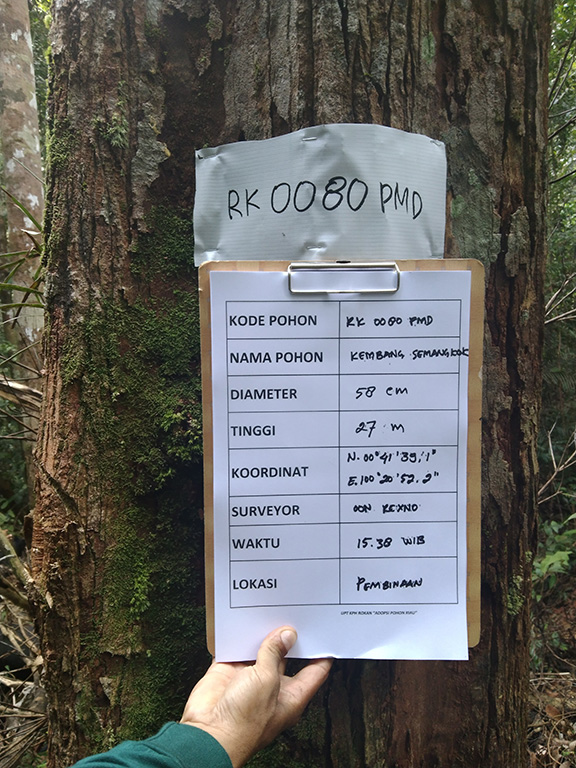 RK 0080 PMD
KODE POHON RK 0080 PMD
NAMA POHON KEMBANG SEMANGKOK
DIAMETER 58 cm
TINGGI 27 m
KOORDINAT N. 00°41'39,1"
E. 100°20'52.2"
SURVEYOR
WAKTU 15.38 WIB
LOKASI PEMBINAAN
UPT KPH ROKAN "ADOPSI POHON RIAU"